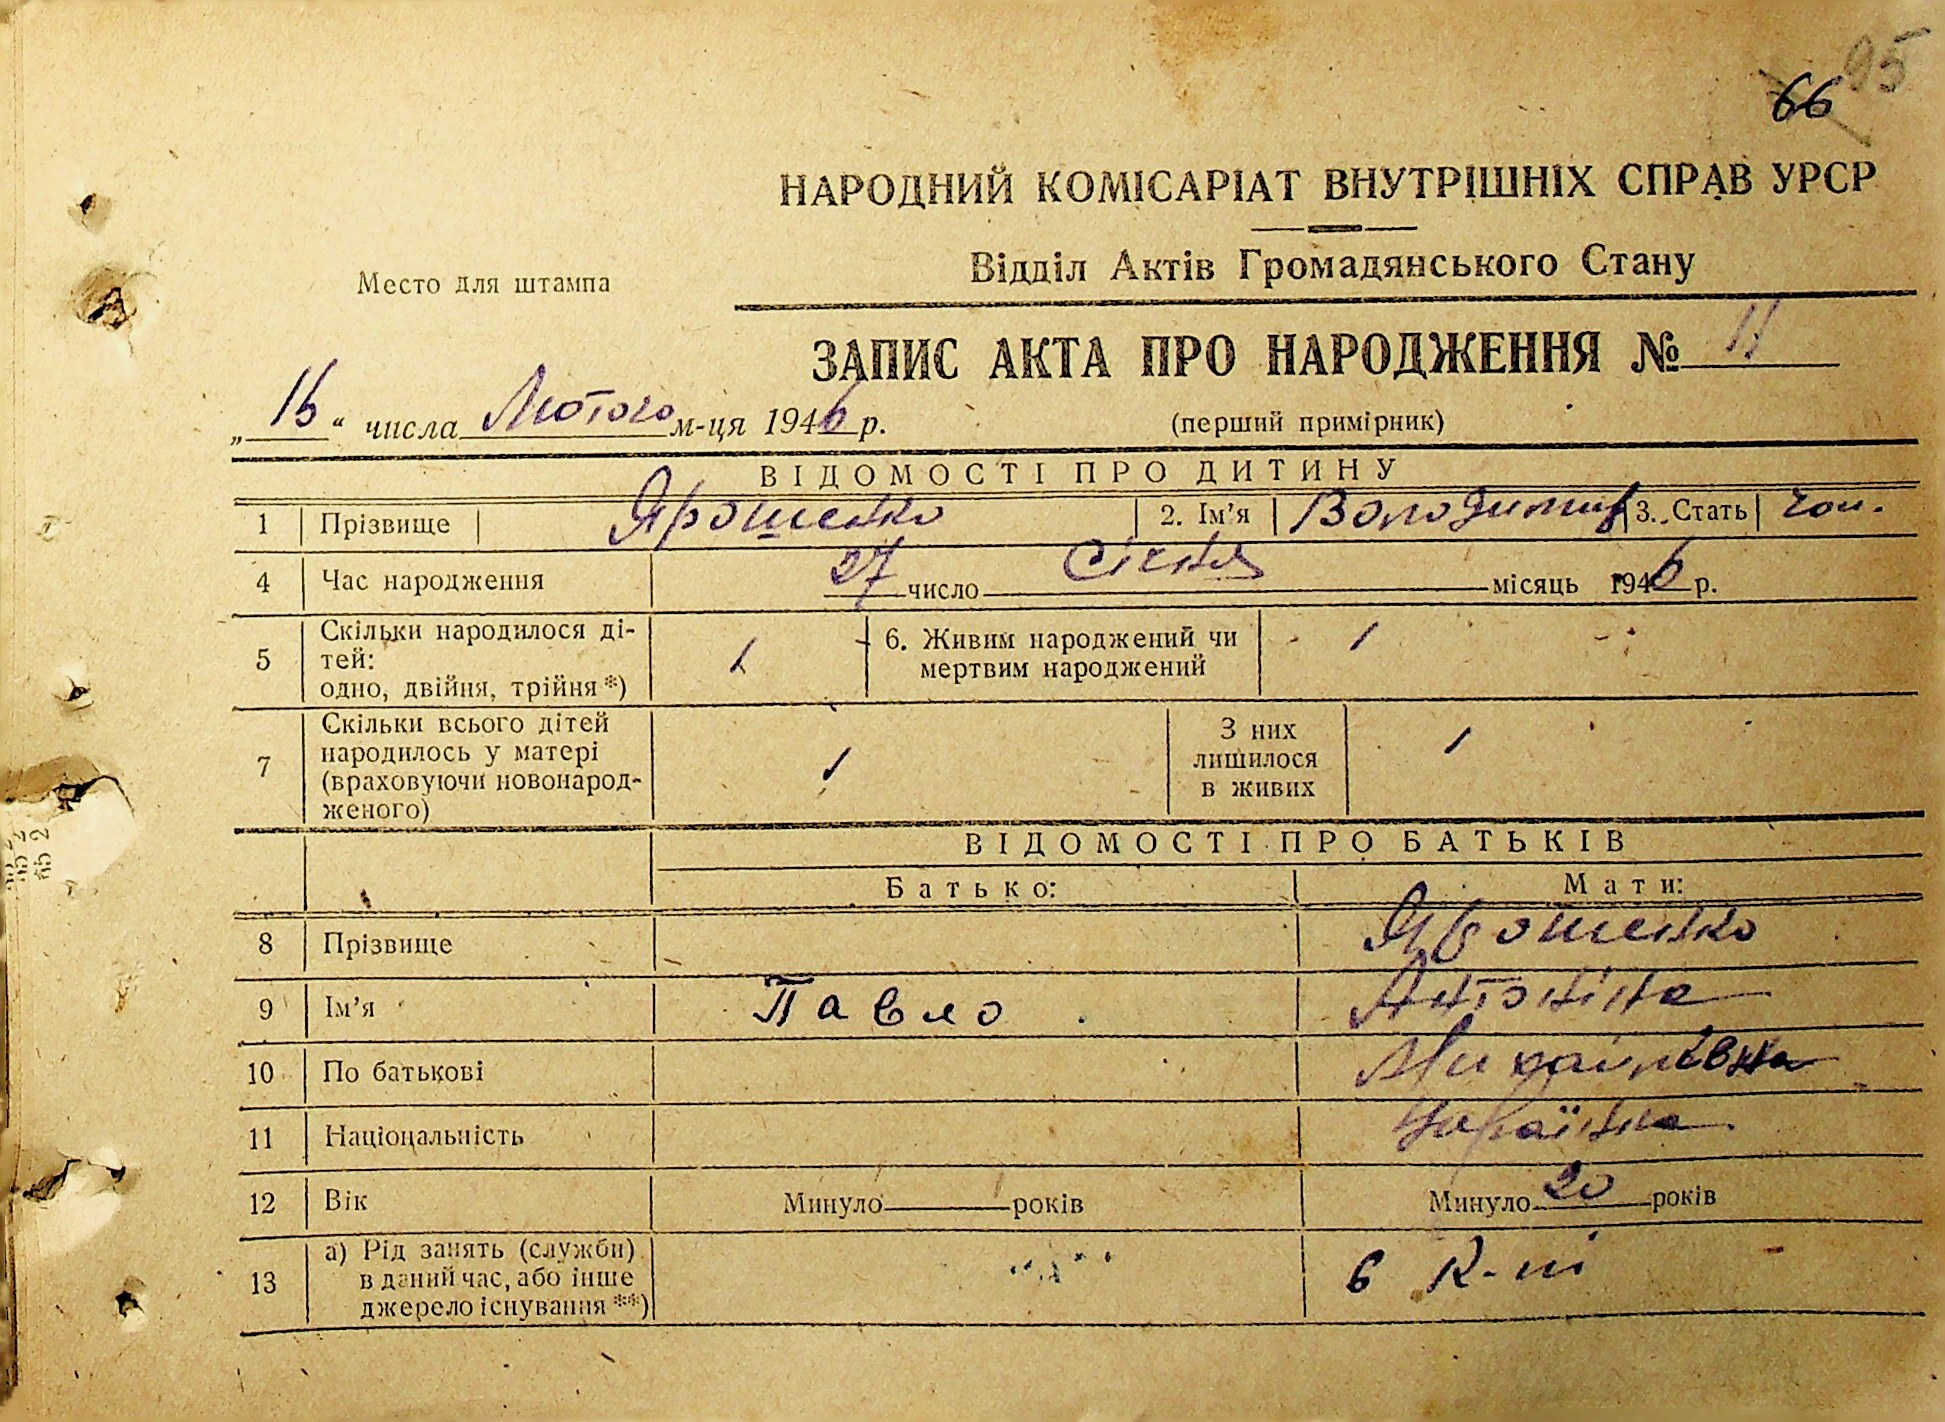 95
66
НАРОДНИЙ КОМІСАРІАТ ВНУТРІШНІХ СПРАВ УРСР
Відділ Актів Громадянського Стану
Место для штампа
ЗАПИС АКТА ПРО НАРОДЖЕННЯ № 11
„16“ числа Лютого м-ця 1946 р.
(перший примірник)
ВІДОМОСТІ ПРО ДИТИНУ
1 Прізвище Ярошенко 2. Ім'я Володимир 3. Стать чол.
4 Час народження 27 число Січня місяць 1946 р.
5 Скільки народилося ді-
тей:
одно, двійня, трійня *) 1 6. Живим народжений чи
мертвим народжений 1
7 Скільки всього дітей
народилось у матері
(враховуючи новонарод-
женого) 1 З них
лишилося
в живих 1
ВІДОМОСТІ ПРО БАТЬКІВ
Батько: Мати:
8 Прізвище Ярошенко
9 Ім'я Павло Антоніна
10 По батькові Михайлівна
11 Національність Українка
12 Вік Минуло років Минуло 20 років
13 а) Рід занять (служби)
в даний час, або інше
джерело існування **) в к-ні